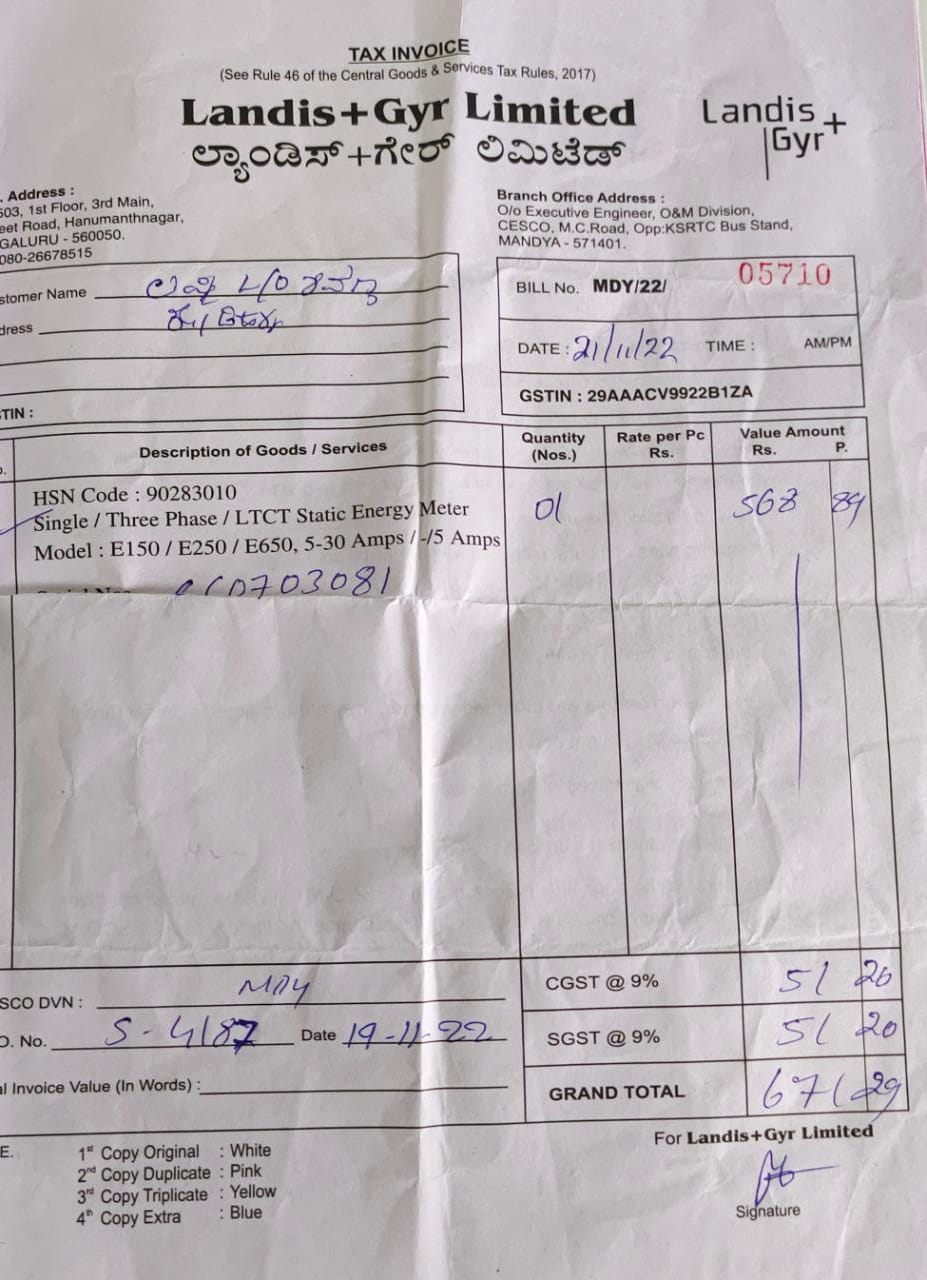 TAX INVOICE
(See Rule 46 of the Central Goods & Services Tax Rules, 2017)
Landis+Gyr Limited
ಲ್ಯಾಂಡಿಸ್+ಗೇರ್ ಲಿಮಿಟೆಡ್
Landis
Gyr+
. Address :
503, 1st Floor, 3rd Main,
eet Road, Hanumanthnagar,
GALURU - 560050.
080-26678515
Branch Office Address :
O/o Executive Engineer, O&M Division,
CESCO, M.C.Road, Opp:KSRTC Bus Stand,
MANDYA - 571401.
stomer Name
dress
TIN :
BILL No. MDY/22/ 05710
DATE : 21/11/22 TIME : AM/PM
GSTIN : 29AAACV9922B1ZA
Description of Goods / Services Quantity (Nos.) Rate per Pc Rs. Value Amount Rs. P.
HSN Code : 90283010
Single / Three Phase / LTCT Static Energy Meter 01 568 89
Model : E150 / E250 / E650, 5-30 Amps / -/5 Amps
SCO DVN : MDY
CGST @ 9% 51 20
O. No. S-4187 Date 19-11-22
SGST @ 9% 51 20
al Invoice Value (In Words) :
GRAND TOTAL 671 29
E.
1st Copy Original : White
2nd Copy Duplicate : Pink
3rd Copy Triplicate : Yellow
4th Copy Extra : Blue
For Landis+Gyr Limited
Signature